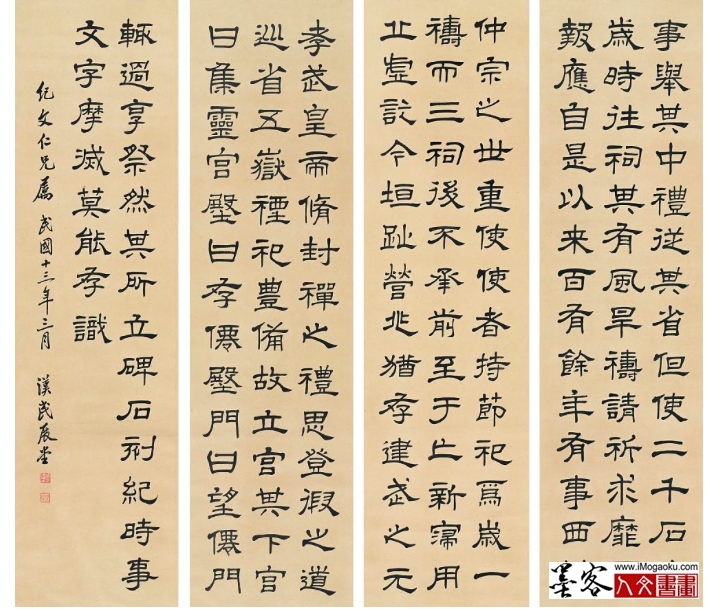 事舉其中禮從其省但使二千石
歲時往祠其有風旱禱請祈求靡
報應自是以来百有餘年有事西
仲宗之世重使使者持節祀焉歲一
禱而三祠後不承前至于亡新寖用
丘虛訖今垣趾營兆猶存建武之元
孝武皇帝脩封禪之禮思登徦之道
巡省五嶽禋祀豐備故立宮其下宮
曰集靈宮殿曰存僊殿門曰望僊門
輒過享祭然其所立碑石刻紀時事
文字摩滅莫能存識
紀文仁兄屬 民國十三年三月 漢民展堂
墨客
www.iMogaoku.com
人文書畫